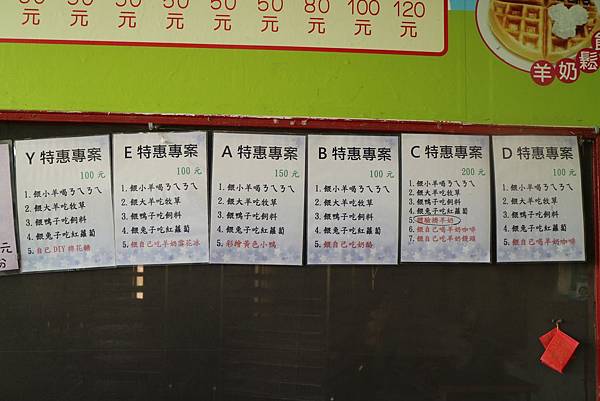 50 50 50 80 100 120
元 元 元 元 元 元 元 元
羊奶鬆餅
Y 特惠專案
100 元
1. 餵小羊喝ㄋㄟㄋㄟ
2. 餵大羊吃牧草
3. 餵鴨子吃飼料
4. 餵兔子吃紅蘿蔔
5. 自己DIY 棉花糖
E 特惠專案
100 元
1. 餵小羊喝ㄋㄟㄋㄟ
2. 餵大羊吃牧草
3. 餵鴨子吃飼料
4. 餵兔子吃紅蘿蔔
5. 餵自己吃羊奶雪花冰
A 特惠專案
150 元
1. 餵小羊喝ㄋㄟㄋㄟ
2. 餵大羊吃牧草
3. 餵鴨子吃飼料
4. 餵兔子吃紅蘿蔔
5. 彩繪黃色小鴨
B 特惠專案
100 元
1. 餵小羊喝ㄋㄟㄋㄟ
2. 餵大羊吃牧草
3. 餵鴨子吃飼料
4. 餵兔子吃紅蘿蔔
5. 餵自己吃奶酪
C 特惠專案
200 元
1. 餵小羊喝ㄋㄟㄋㄟ
2. 餵大羊吃牧草
3. 餵鴨子吃飼料
4. 餵兔子吃紅蘿蔔
5. 體驗擠羊奶
6. 餵自己喝羊奶咖啡
7. 餵自己吃羊奶饅頭
D 特惠專案
100 元
1. 餵小羊喝ㄋㄟㄋㄟ
2. 餵大羊吃牧草
3. 餵鴨子吃飼料
4. 餵兔子吃紅蘿蔔
5. 餵自己喝羊奶咖啡
元